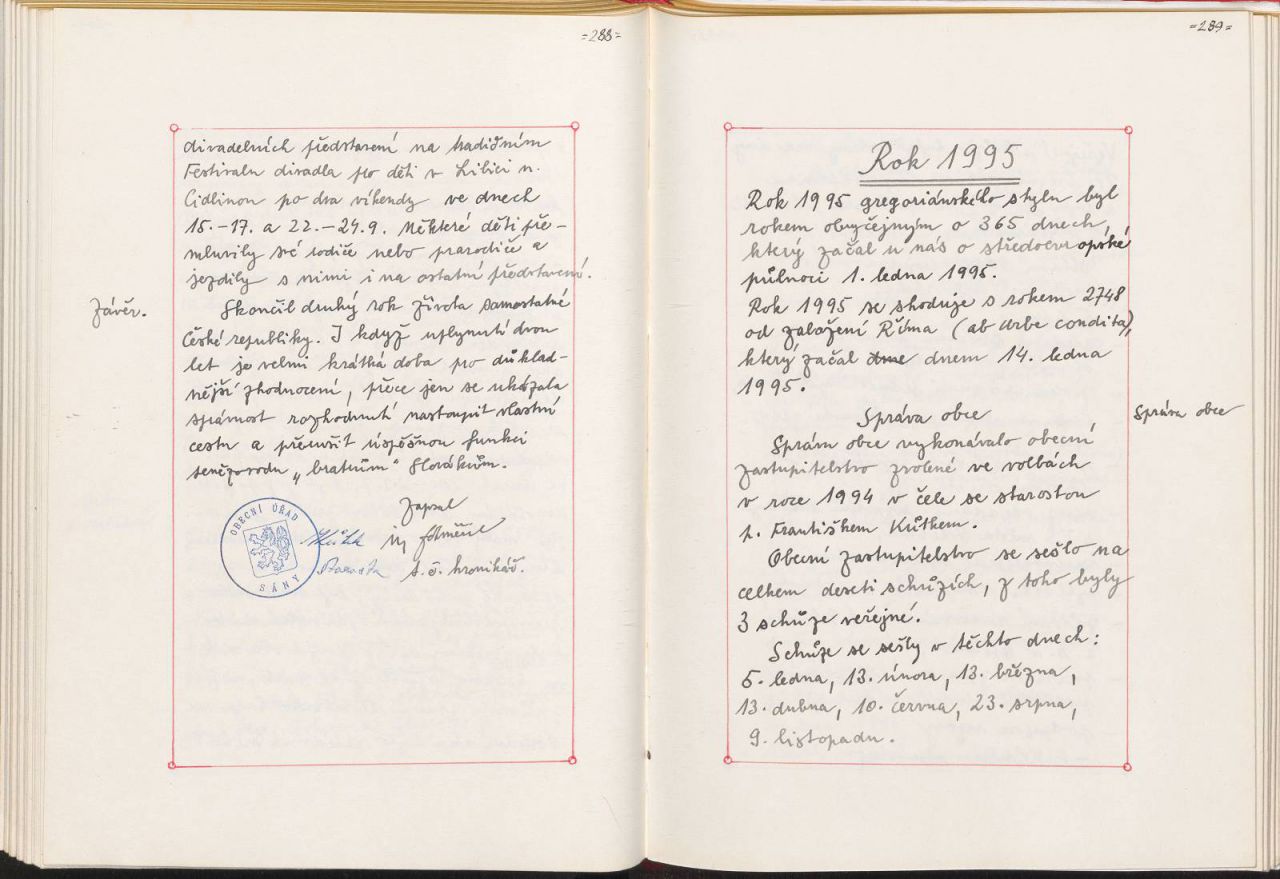 =288=
divadelních představení na tradičním
Festivalu divadla pro děti v Libici n.
Cidlinou po dva víkendy ve dnech
15.-17. a 22.-24.9. Některé děti pře-
mluvily své rodiče nebo prarodiče a
jezdily s nimi i na ostatní představení.
Závěr.
Skončil druhý rok života samostatné
České republiky. I když uplynutí dvou
let je velmi krátká doba pro důklad-
nější zhodnocení, přece jen se ukázala
správnost rozhodnutí nastoupit vlastní
cestu a přerušit úspěšnou funkci
"bratrům" Slovákům.
Zapsal
t.č. kronikář.
OBECNÍ ÚŘAD
SÁNY
Starosta
=289=
Rok 1995
Rok 1995 gregoriánského stylu byl
rokem obyčejným o 365 dnech,
který začal u nás o středoevropské
půlnoci 1. ledna 1995.
Rok 1995 se shoduje s rokem 2748
od založení Říma (ab urbe condita),
který začal dnem 14. ledna
1995.
Správa obce
Správa obce
Správu obce vykonávalo obecní
zastupitelstvo zvolené ve volbách
v roce 1994 v čele se starostou
p. Františkem Kůtkem.
Obecní zastupitelstvo se sešlo na
celkem deseti schůzích, z toho byly
3 schůze veřejné.
Schůze se sešly v těchto dnech:
5. ledna, 13. února, 13. března,
13. dubna, 10. června, 23. srpna,
9. listopadu.